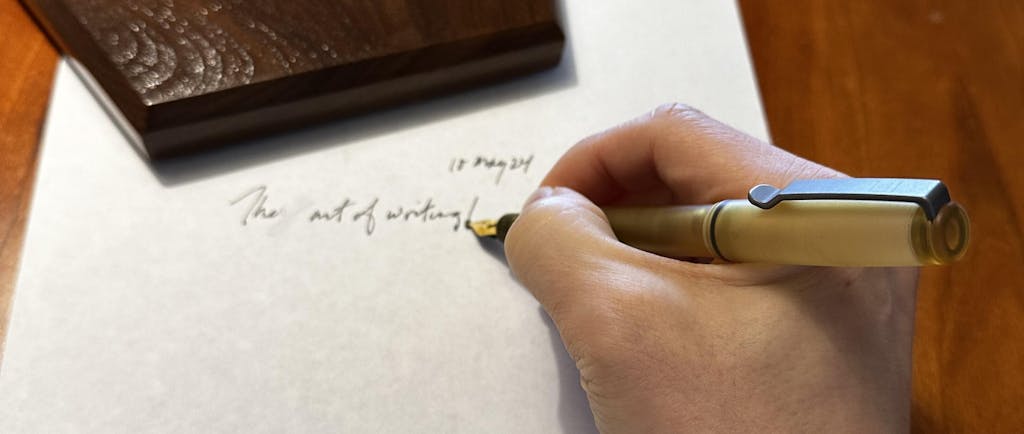 18 May 24
The art of writing!